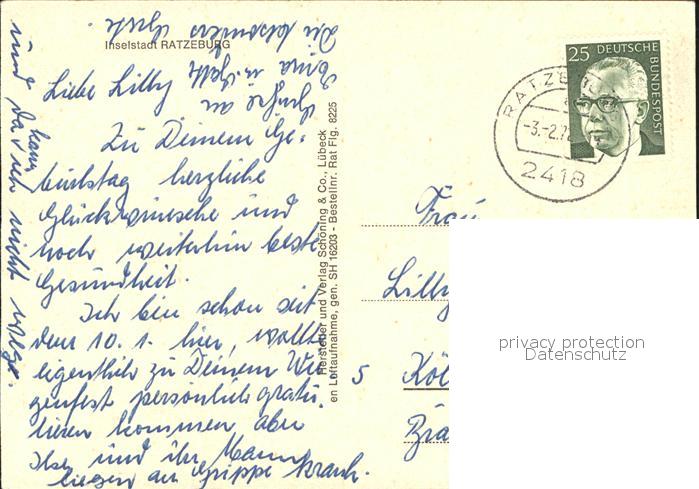 Inselstadt RATZEBURG
Liebe Lilly
Zu Deinem Ge-
burtstag herzliche
Glückwünsche und
noch weiterhin beste
Gesundheit.
Ich bin schon seit
dem 10. 1. hier, wollte
eigentlich zu Deinem Wie
genfest persönlich gratu-
lieren kommen, aber
Ilse und ihr Mann
liegen an Grippe krank.
und da
kann
ich nicht weg.
Grüße an
Dich besonders
Grete
Hersteller und Verlag Schöning & Co., Lübeck
en Luftaufnahme, gen. SH 16203 - Bestellnr. Rat Flg. 8225
25 DEUTSCHE
BUNDESPOST
RATZEBURG
-3.-2.72
2418
Frau
Lilly
5 Köl
privacy protection
Datenschutz